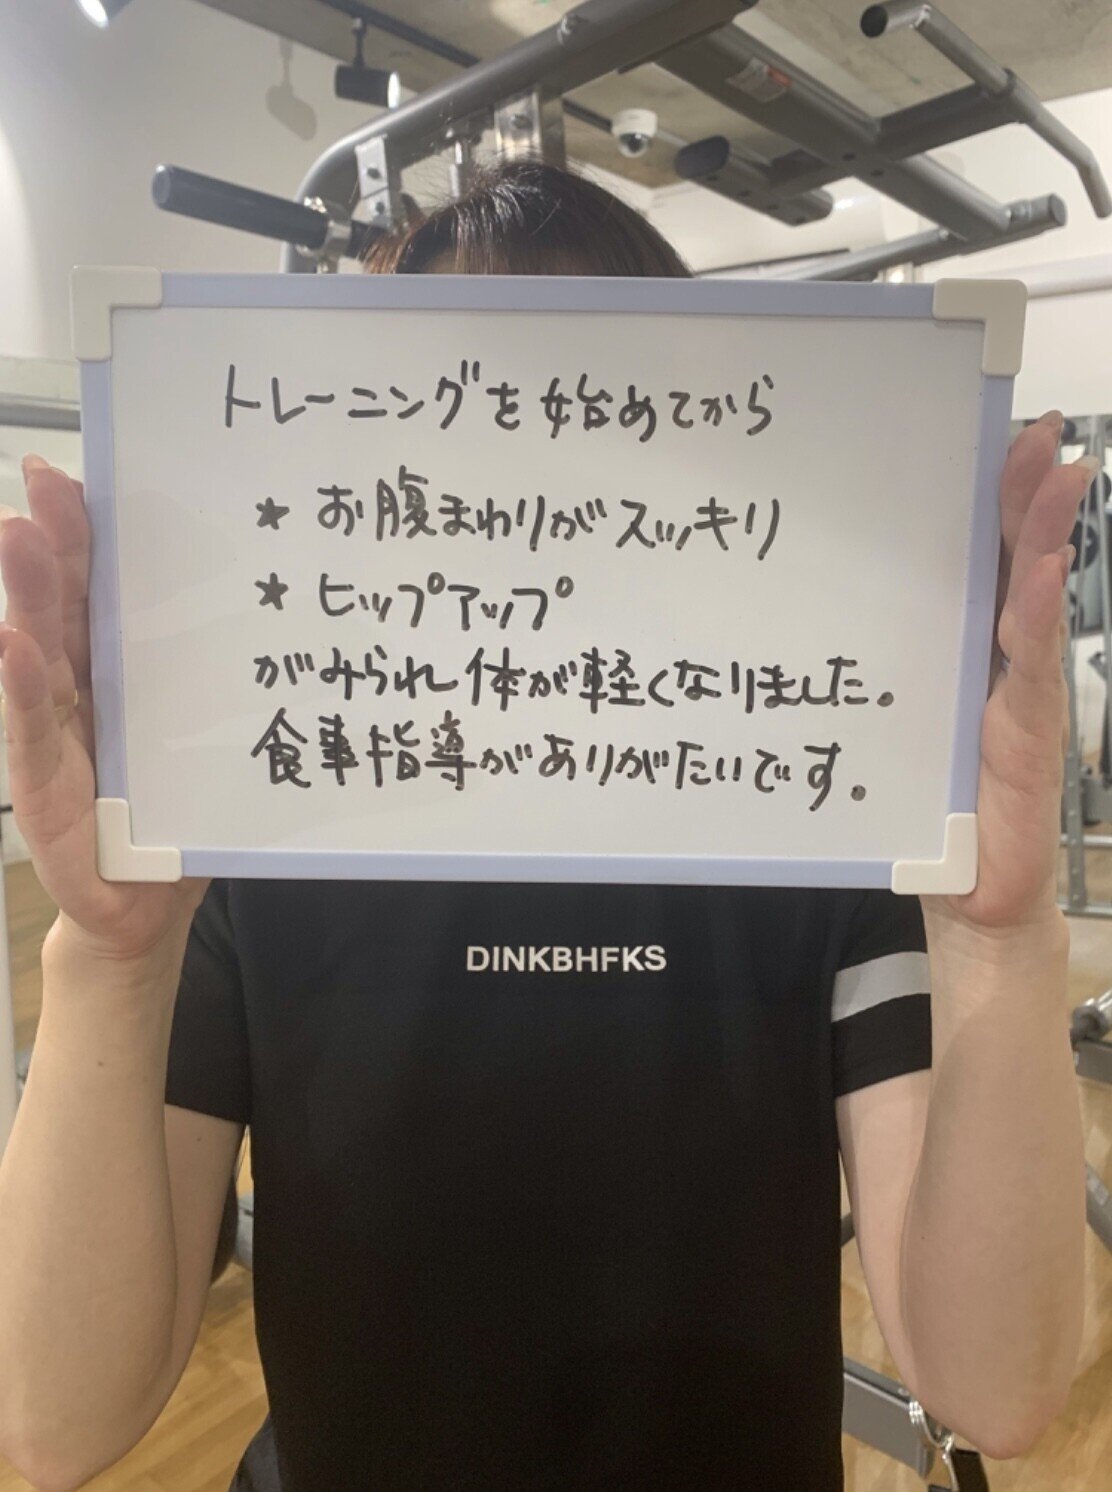 トレーニングを始めてから
★ お腹まわりがスッキリ
★ ヒップアップ
がみられ体が軽くなりました。
食事指導がありがたいです。
DINKBHFKS